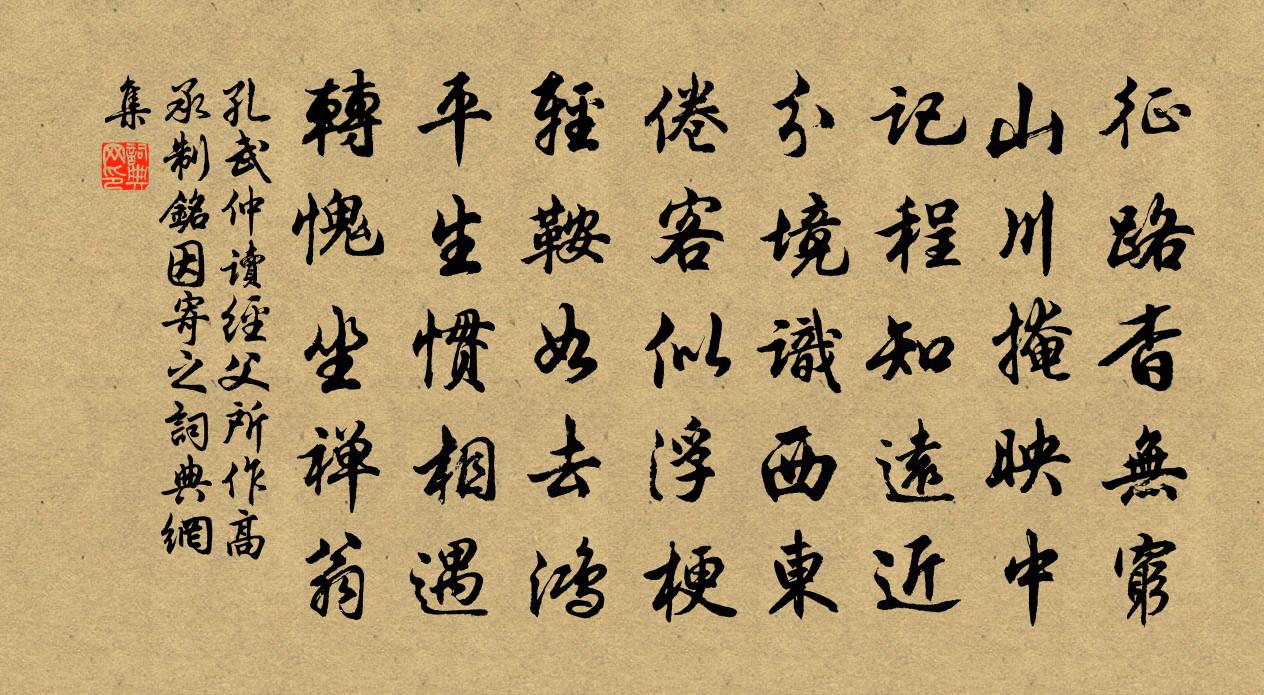 征路杳無窮
山川掩映中
記程知遠近
分境識西東
倦客似浮梗
輕鞍如去鴻
平生慣相遇
轉愧坐禅翁
孔武仲讀經父所作高
承制銘因寄之詞典網
集
詞典网印